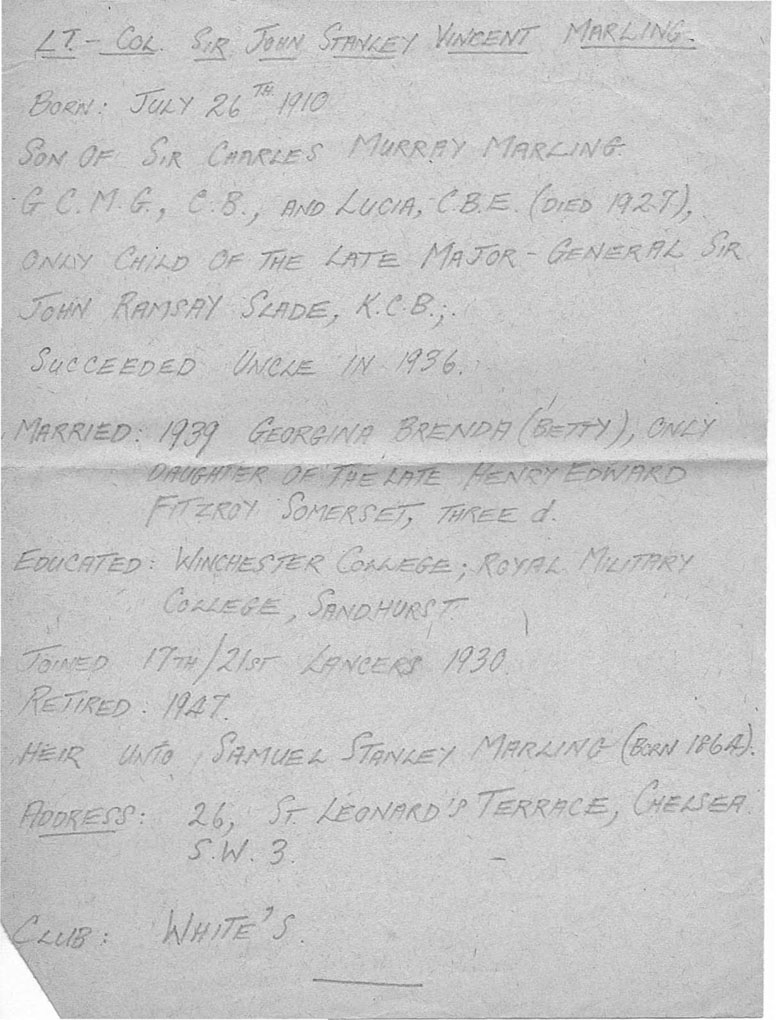 LT.-COL. SIR JOHN STANLEY VINCENT MARLING.
BORN: JULY 26TH 1910
SON OF SIR CHARLES MURRAY MARLING
G C.M.G., C.B., AND LUCIA, C.B.E. (DIED 1927),
ONLY CHILD OF THE LATE MAJOR-GENERAL SIR
JOHN RAMSAY SLADE, K.C.B.;.
SUCCEEDED UNCLE IN 1936.
MARRIED: 1939 GEORGINA BRENDA (BETTY), ONLY
DAUGHTER OF THE LATE HENRY EDWARD
FITZROY SOMERSET, THREE d.
EDUCATED: WINCHESTER COLLEGE; ROYAL MILITARY
COLLEGE, SANDHURST
JOINED 17TH/21ST LANCERS 1930.
RETIRED: 1947.
HEIR UNTO SAMUEL STANLEY MARLING (BORN 1864).
ADDRESS: 26, ST. LEONARD'S TERRACE, CHELSEA
S.W. 3.
CLUB: WHITE'S.